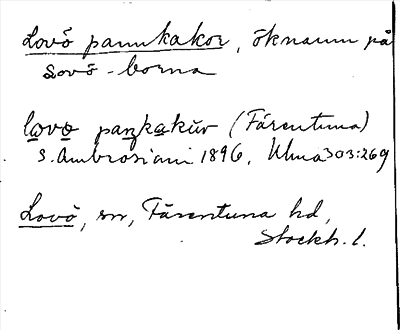 Lovö pannkakor, öknamn på
Lovö-borna
lovo pankakūr (Färentuna)
S. Ambrosiani 1896, Ulma 303:269
Lovö, sn, Färentuna hd,
Stockh. l.